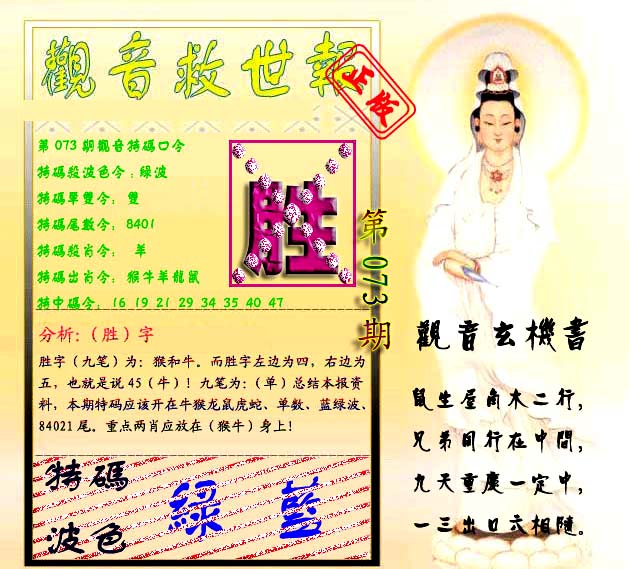 觀音救世報
正版
第 073 期觀音特碼口令
特碼殺波色令：綠波
特碼單雙令： 雙
特碼尾數令： 8401
特碼殺肖令： 羊
特碼出肖令： 猴牛羊龍鼠
特中碼令： 16 19 21 29 34 35 40 47
胜
第073期
分析:（胜）字
胜字（九笔）为：猴和牛。而胜字左边为四，右边为
五，也就是说 45（牛）！九笔为:（单）总结本报资
料，本期特码应该开在牛猴龙鼠虎蛇、单数、蓝绿波、
84021 尾。重点两肖应放在（猴牛）身上！
特碼
波色
綠 藍
觀音玄機書
鼠生屋角木二行，
兄弟同行在中間，
九天重慶一定中，
一三出口六相隨。